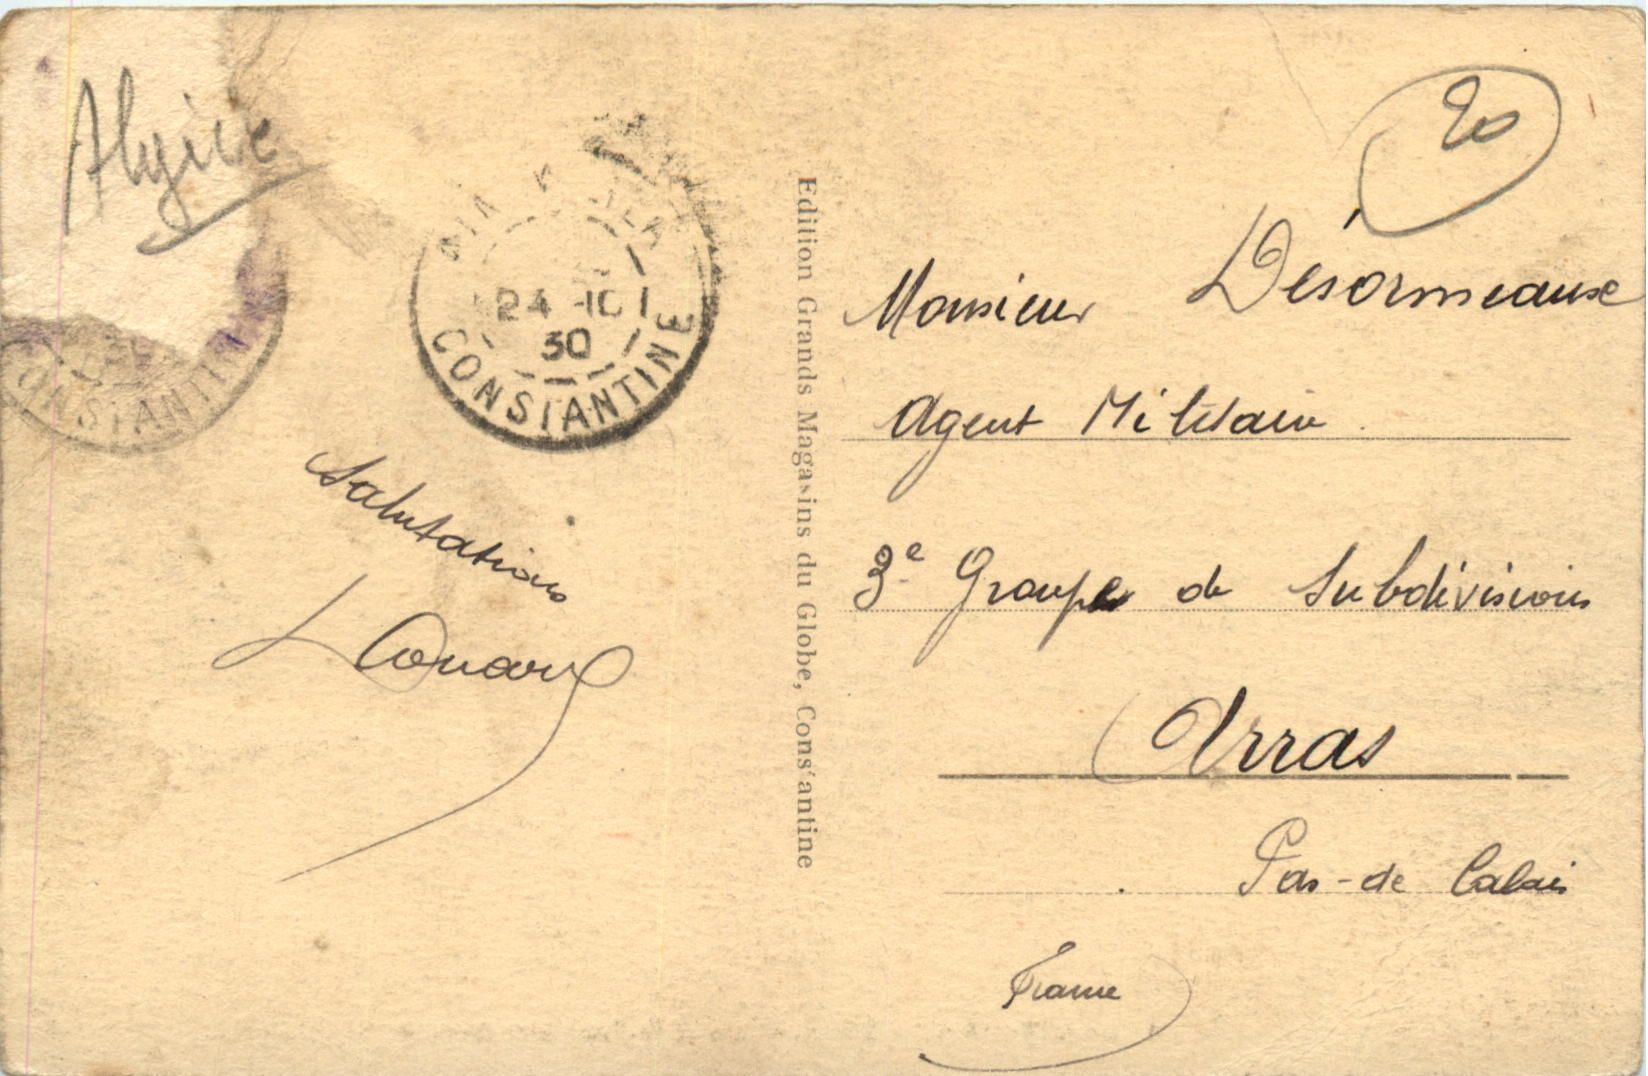 Algérie
20
24 -10
30
CONSTANTINE
CONSTANTINE
Salutations
Edition Grands Magasins du Globe, Cons'antine
Monsieur Désormeaux
Agent Militaire
3e Groupe de Subdivisions
Arras
Pas-de Calais
France